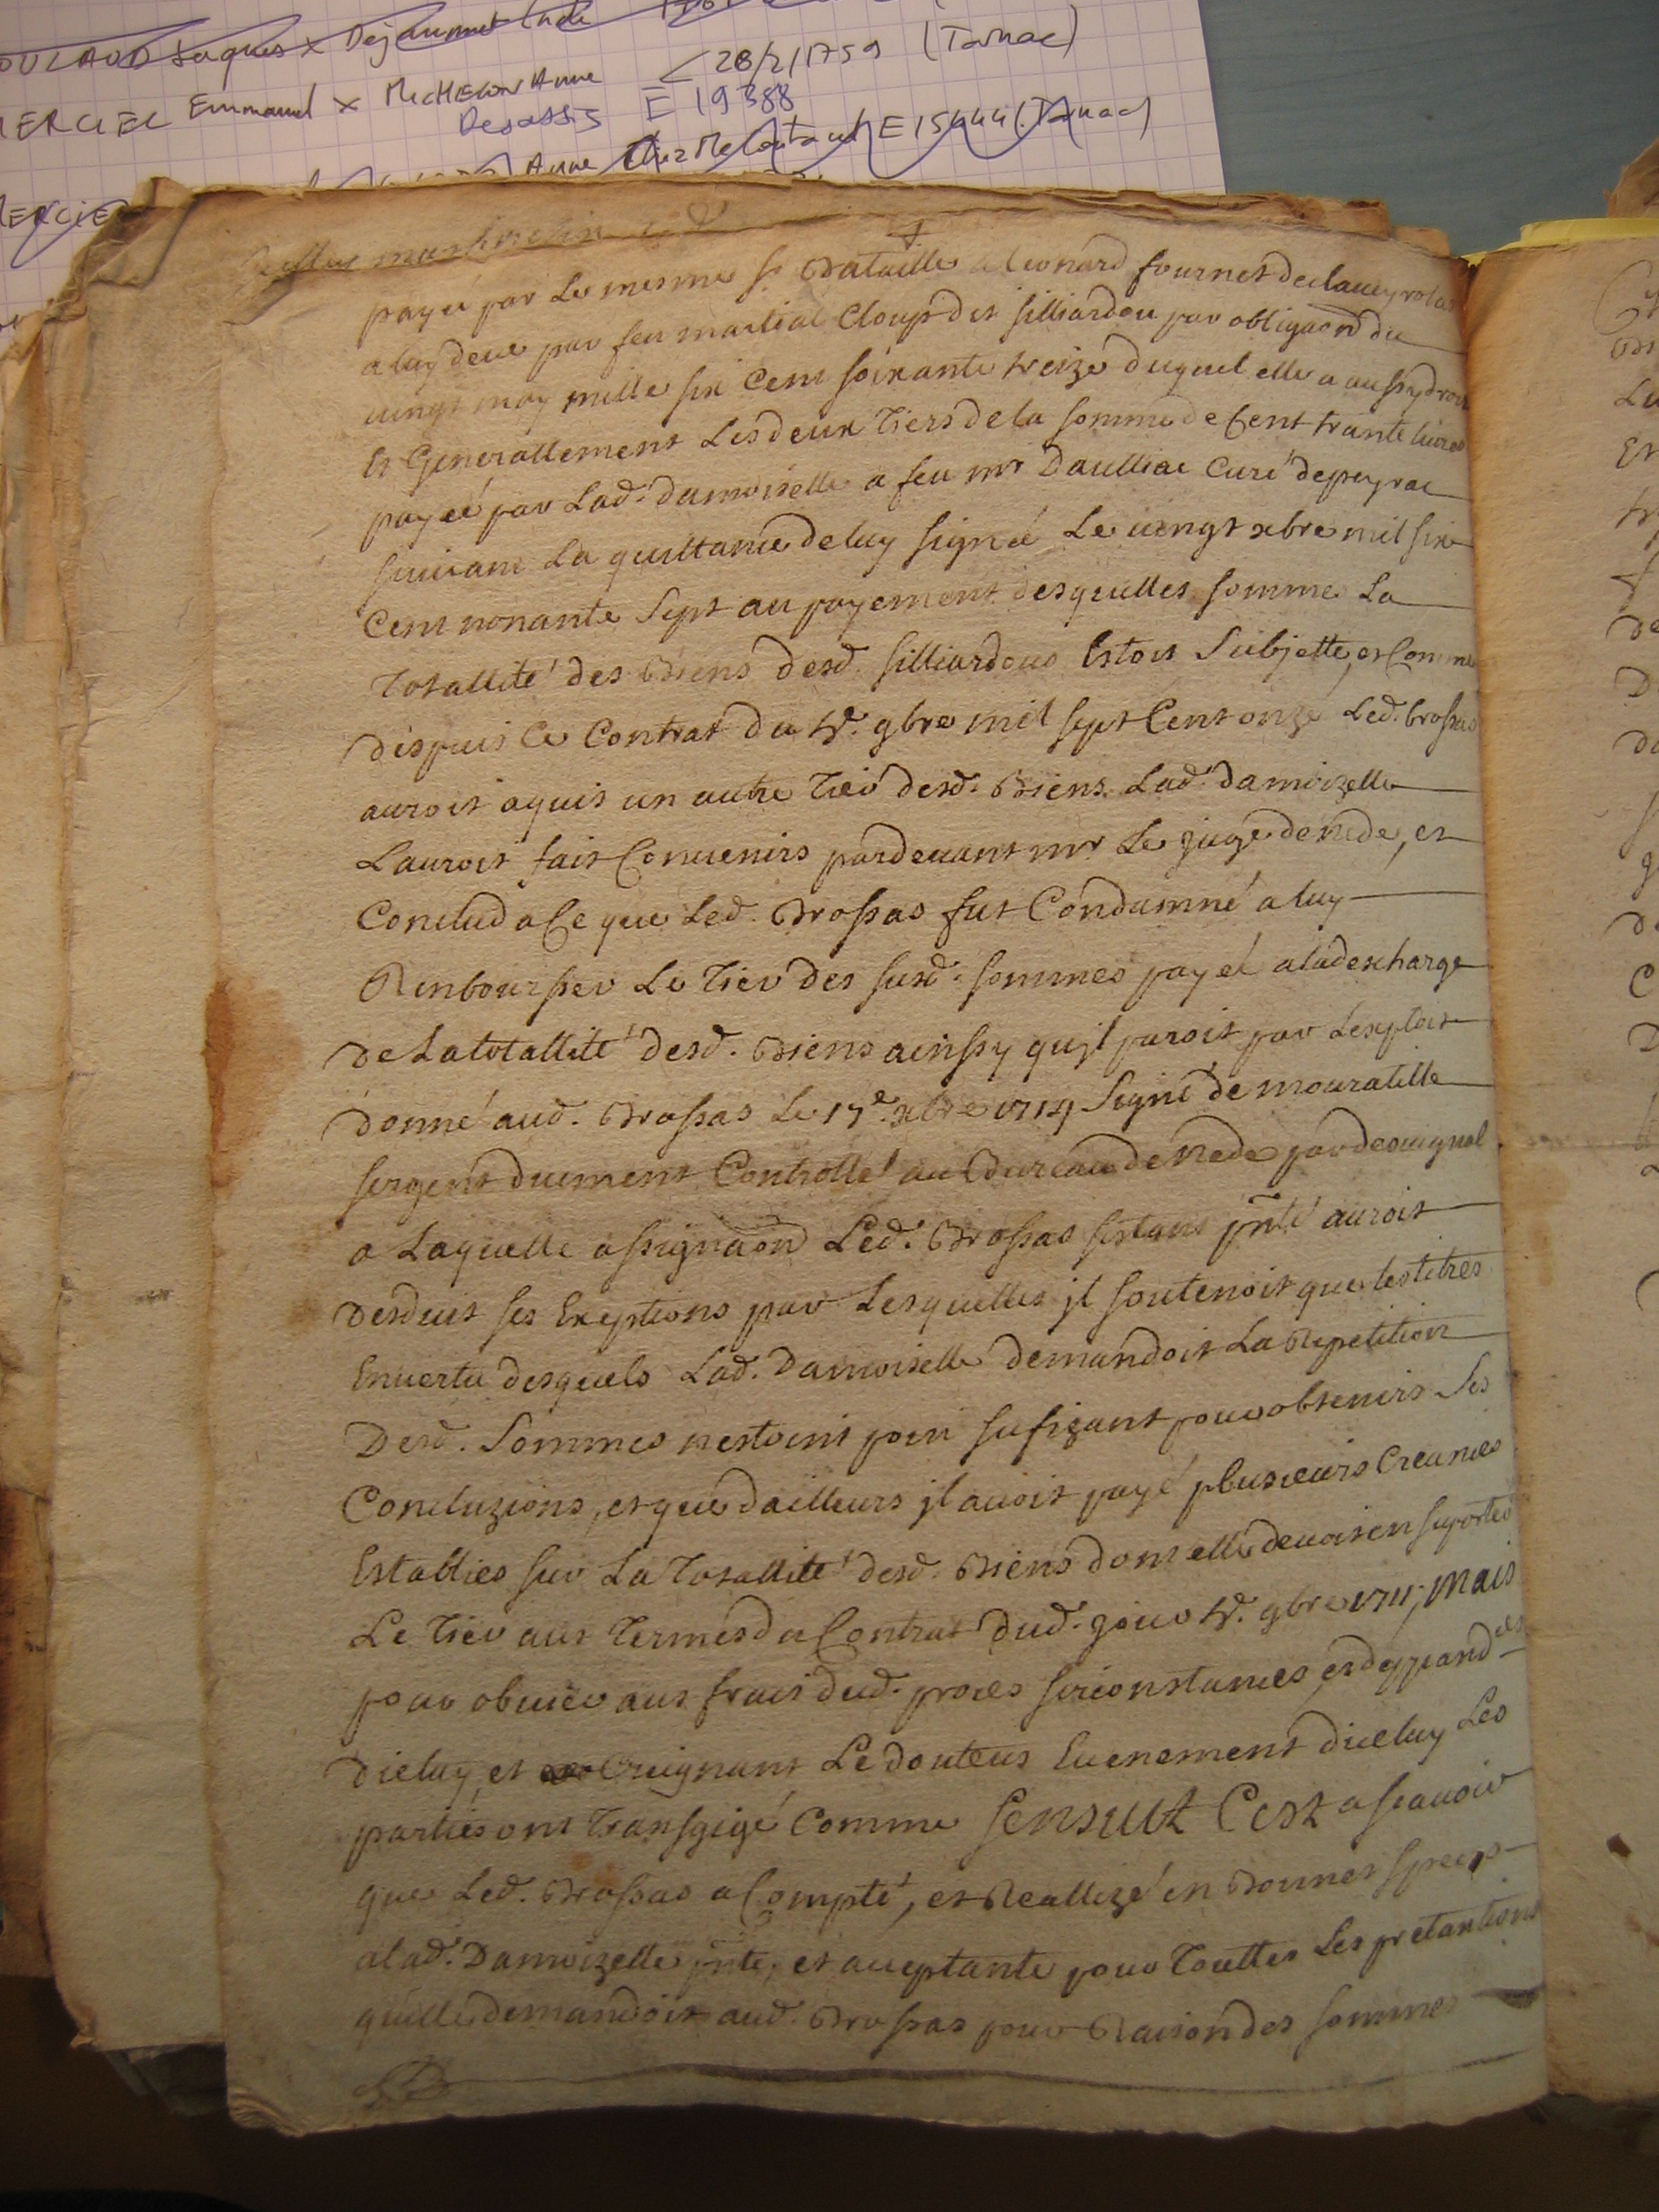 MERCIEL Emmanuel x MICHELON Anne < 28/2/1759 (Tarnac)
Desassis E 19388
Anne E15444 (Tarnac)
MERCIE
payé par Le mesme sr Bataille a Leonard fournet declaueyrolas
a luy deue par feu martial Cloup dit silliardou par obligaon du
uingt may mille six Cent soixante treize duquel elle a aussy droit
Et Generallement Les deux Tiers de la somme de Cent trante liures
payée par Lad. damoiselle a feu mr Daulliac Curé de peyrac
suiuant La quittance de luy signée Le uingt xbre mil six
Cent nonante Sept au payement desquelles somme La
Totallité des Biens desd. silliardous Estoit Subjette, et Comme
despuis Ce Contrat du 4e. 9bre mil sept Cent onze Led. brossas
auroit aquis un autre Tier desd. Biens Lad. Damoizelle
Lauroit fait Conuenir pardeuant mr Le juge de nede, et
Conclud a Ce que Led. Brossas fut Condamné a luy
Remboursser Le Tier des susd. sommes payée a la descharge
De La totallité desd. Biens ainssy qu'jl paroit par Lexploit
donné aud. Brossas Le 17e. xbre 1714 Signé de mouratille
sergent duement Controllé au Bureau de nede par de
a Laquelle assignaon Led. Brossas sestant pnté auroit
Desduit ses Exeptions par Lesquelles jl soutenoit que les titres
En uertu desquels Lad. Damoiselle demandoit La Repetition
Desd. Sommes nestoint poin sufizant pour obtenir Ses
Concluzions, et que dailleurs jl auoit payé plusieurs Creances
Establies sur La Totallité desd. Biens dont elle deuoit en suporter
Le Tier aux Termes du Contrat dud. jour 4e. 9bre 1711; Mais
pour obuier aux frais dud. proces sirconstances, et deppandces
Diceluy, et Creignant Le douteus Euenement diceluy Les
parties ont Transgigé Comme Sensuit Cest a scauoir
que Led. Brossas a Compté, et Reallizé en Bonnes speces
a lad. Damoizelle pnte, et aceptante pour Touttes Les pretantions
qu'elle demandoit aud. Brossas pour Raison des sommes